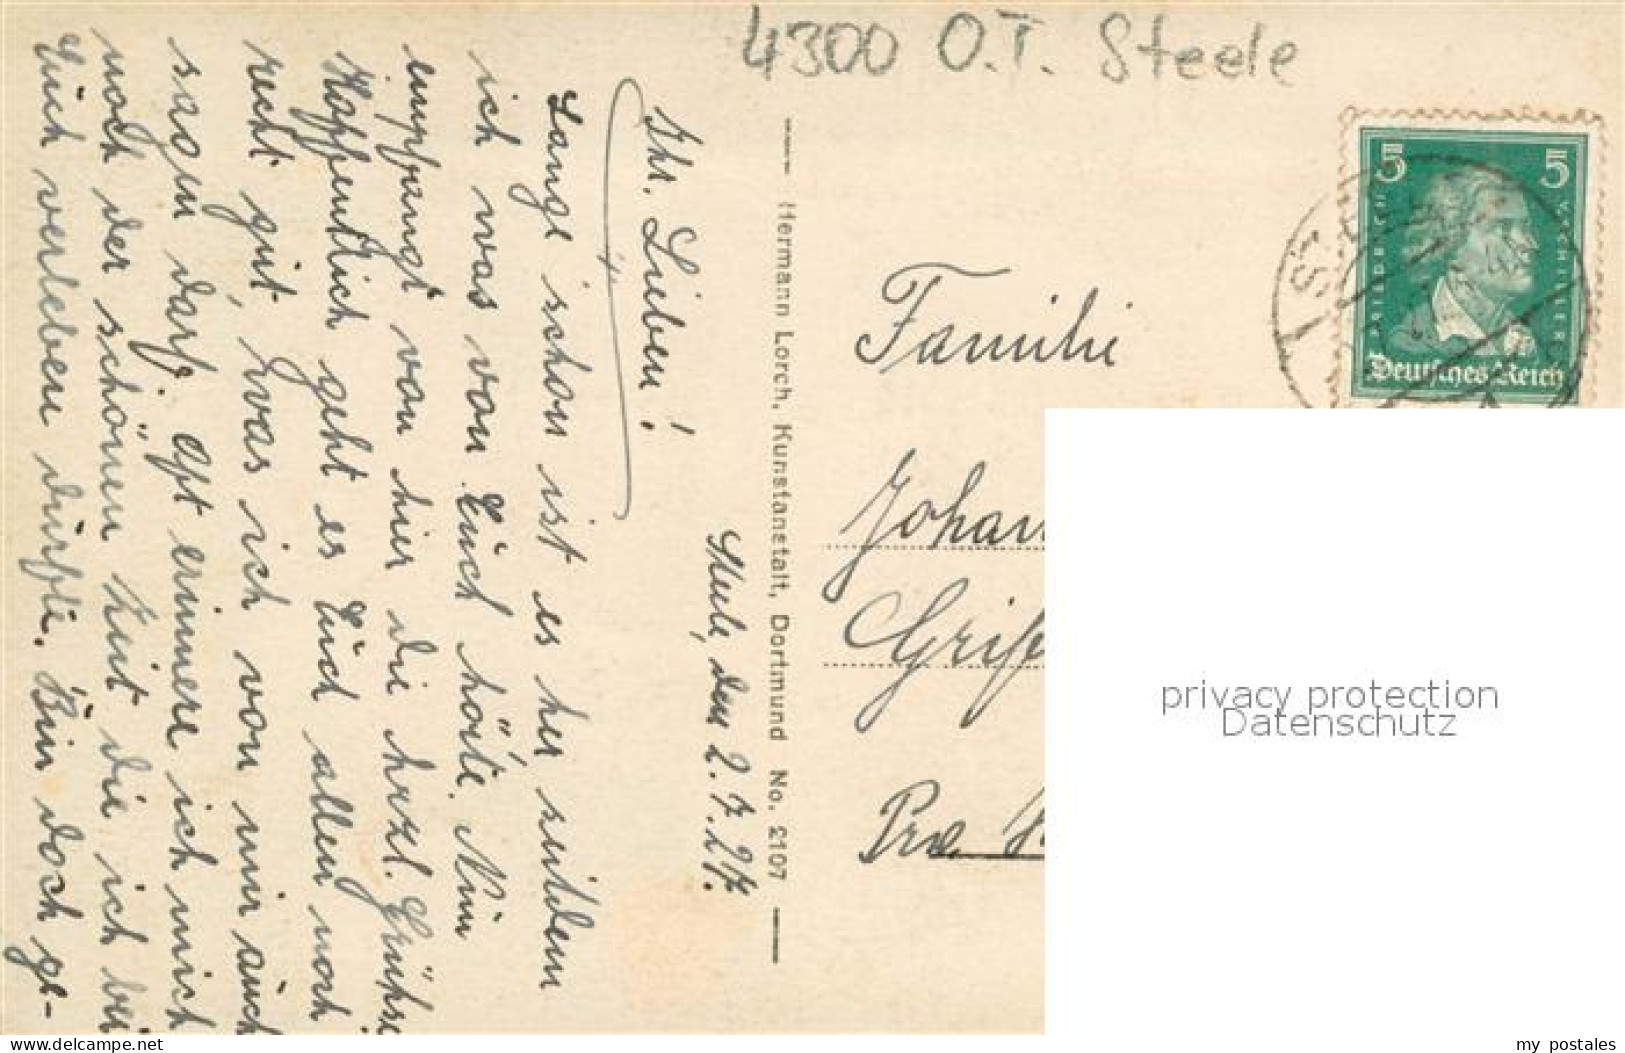 4300 O.T. Steele
Steele, den 2.7.27.
Ihr Lieben!
Lange schon ist es her seitdem
ich was von Euch hörte. Nun
empfangt von hier die herzl. Grüße
Hoffentlich geht es Euch allen noch
recht gut, was ich von mir auch
sagen darf. Oft erinnere ich mich
noch der schönen Zeit die ich bei
Euch verleben durfte. Bin doch ge-
Hermann Lorch, Kunstanstalt, Dortmund No. 2107
5 5
FRIEDRICH V. SCHILLER
Deutsches Reich
Familie
privacy protection
Datenschutz
Besuchen Sie ansichtskartenversand.com
my postales